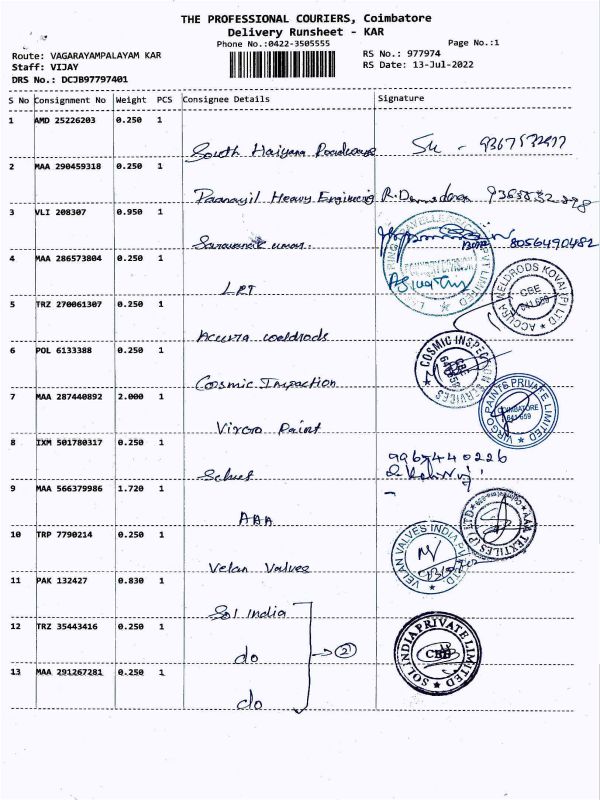 THE PROFESSIONAL COURIERS, Coimbatore
Delivery Runsheet - KAR
Phone No.:0422-3505555
Page No.:1
Route: VAGARAYAMPALAYAM KAR
RS No.: 977974
Staff: VIJAY
RS Date: 13-Jul-2022
DRS No.: DCJB97797401
S No Consignment No Weight PCS Consignee Details Signature
1 AMD 25226203 0.250 1
South
2 MAA 290459318 0.250 1
Heavy Engineering
3 VLI 208307 0.950 1
8056490482
4 MAA 286573804 0.250 1
LPT
Aswathy
ACCURA WELDRODS KOVAI (P) LTD
CBE
641 659
5 TRZ 270061307 0.250 1
Accura weldrods
6 POL 6133388 0.250 1
COSMIC INSPECTION SERVICES
Cosmic Inspection
7 MAA 287440892 2.000 1
VIRGO PAINTS PRIVATE LIMITED
COIMBATORE
641-659
Virgo Paint
8 IXM 501780317 0.250 1
9 MAA 566379986 1.720 1
AAA
AAA TEXTILES (P) LTD
10 TRP 7790214 0.250 1
VELAN VALVES INDIA
Velan Valves
11 PAK 132427 0.830 1
Sol India
12 TRZ 35443416 0.250 1
do
2
SOL INDIA PRIVATE LIMITED
CBE
13 MAA 291267281 0.250 1
do